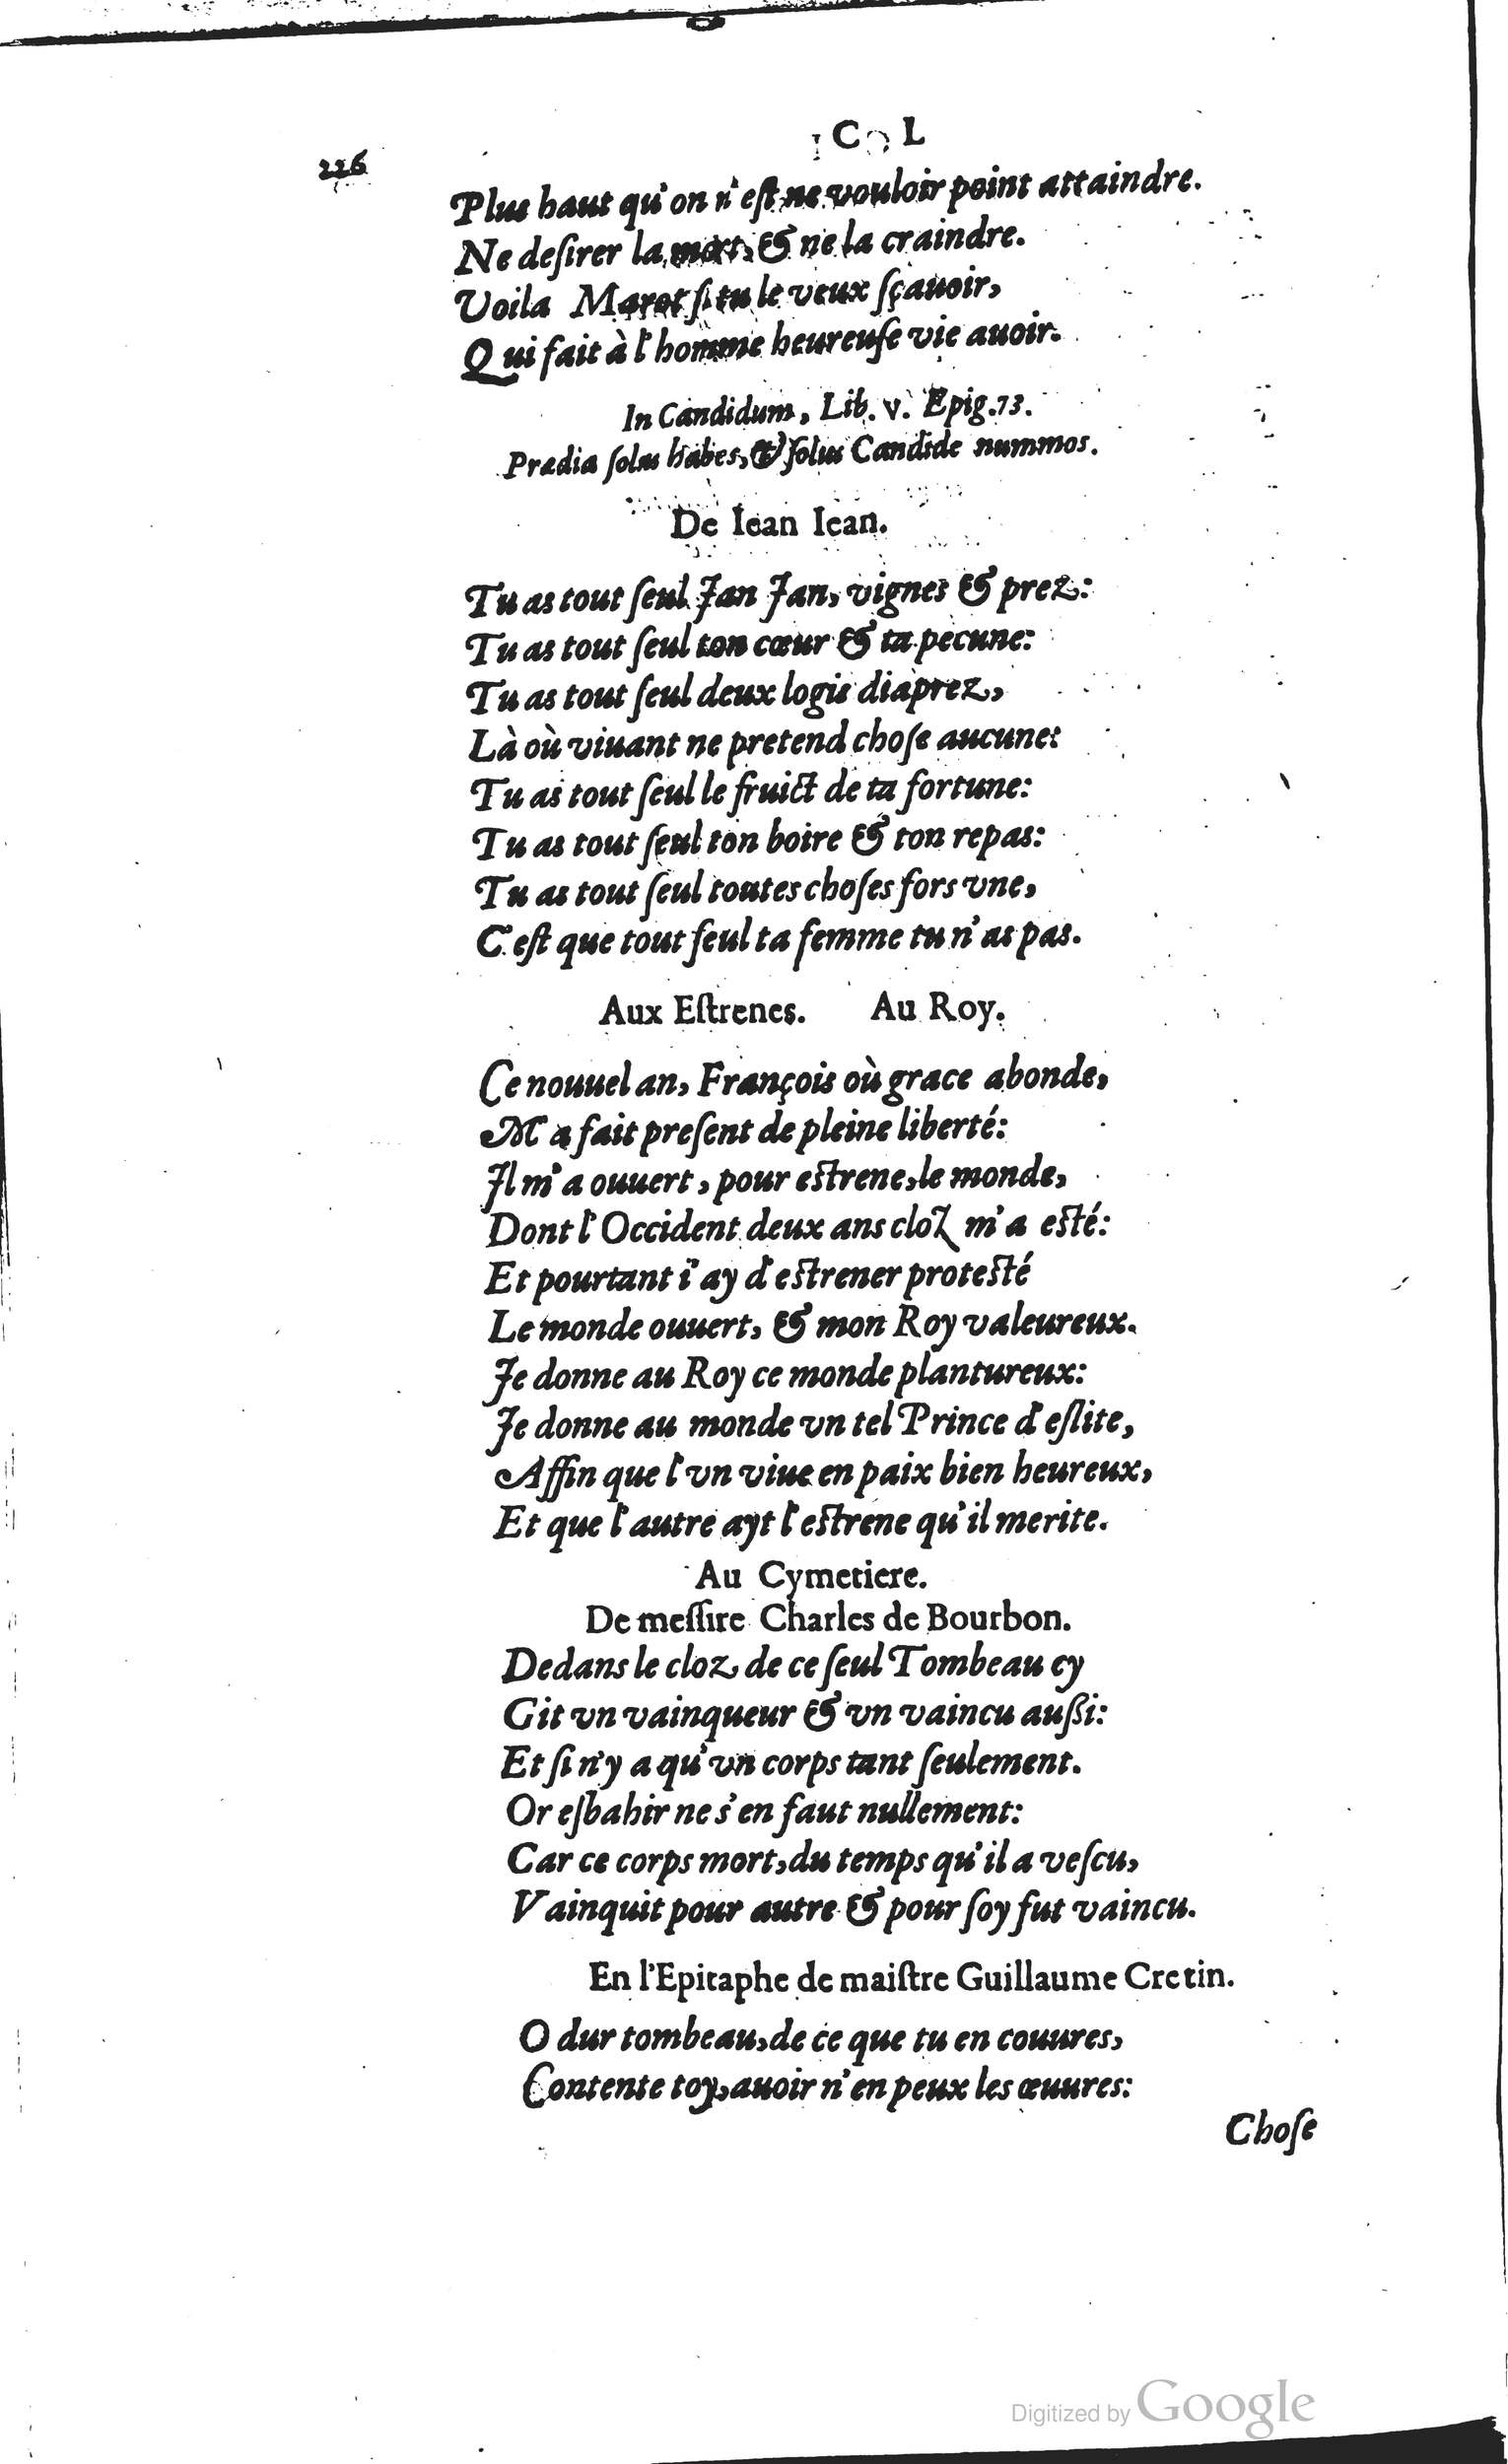 226
C O L
Plus haut qu'on n'eſt ne vouloir point attaindre.
Ne deſirer la mort, & ne la craindre.
Voila Marot ſi tu le veux ſçauoir,
Qui fait à l'homme heureuſe vie auoir.
In Candidum, Lib. V. Epig. 73.
Prædia ſolus habes, & ſolus Candide nummos.
De Iean Iean.
Tu as tout ſeul Jan Jan, vignes & prez:
Tu as tout ſeul ton cœur & ta pecune:
Tu as tout ſeul deux logis diaprez,
Là où viuant ne pretend choſe aucune:
Tu as tout ſeul le fruict de ta fortune:
Tu as tout ſeul ton boire & ton repas:
Tu as tout ſeul toutes choſes fors vne,
C'eſt que tout ſeul ta femme tu n'as pas.
Aux Eſtrenes. Au Roy.
Ce nouuel an, François où grace abonde,
M'a fait preſent de pleine liberté:
Il m'a ouuert, pour eſtrene, le monde,
Dont l'Occident deux ans cloz m'a eſté:
Et pourtant i'ay d'eſtrener proteſté
Le monde ouuert, & mon Roy valeureux.
Je donne au Roy ce monde plantureux:
Je donne au monde vn tel Prince d'eſlite,
Affin que l'vn viue en paix bien heureux,
Et que l'autre ayt l'eſtrene qu'il merite.
Au Cymetiere.
De meſſire Charles de Bourbon.
Dedans le cloz de ce ſeul Tombeau cy
Git vn vainqueur & vn vaincu außi:
Et ſi n'y a qu'vn corps tant ſeulement.
Or eſbahir ne s'en faut nullement:
Car ce corps mort, du temps qu'il a veſcu,
Vainquit pour autre & pour ſoy fut vaincu.
En l'Epitaphe de maiſtre Guillaume Cretin.
O dur tombeau, de ce que tu en couures,
Contente toy, auoir n'en peux les œuures:
Choſe
Digitized by Google